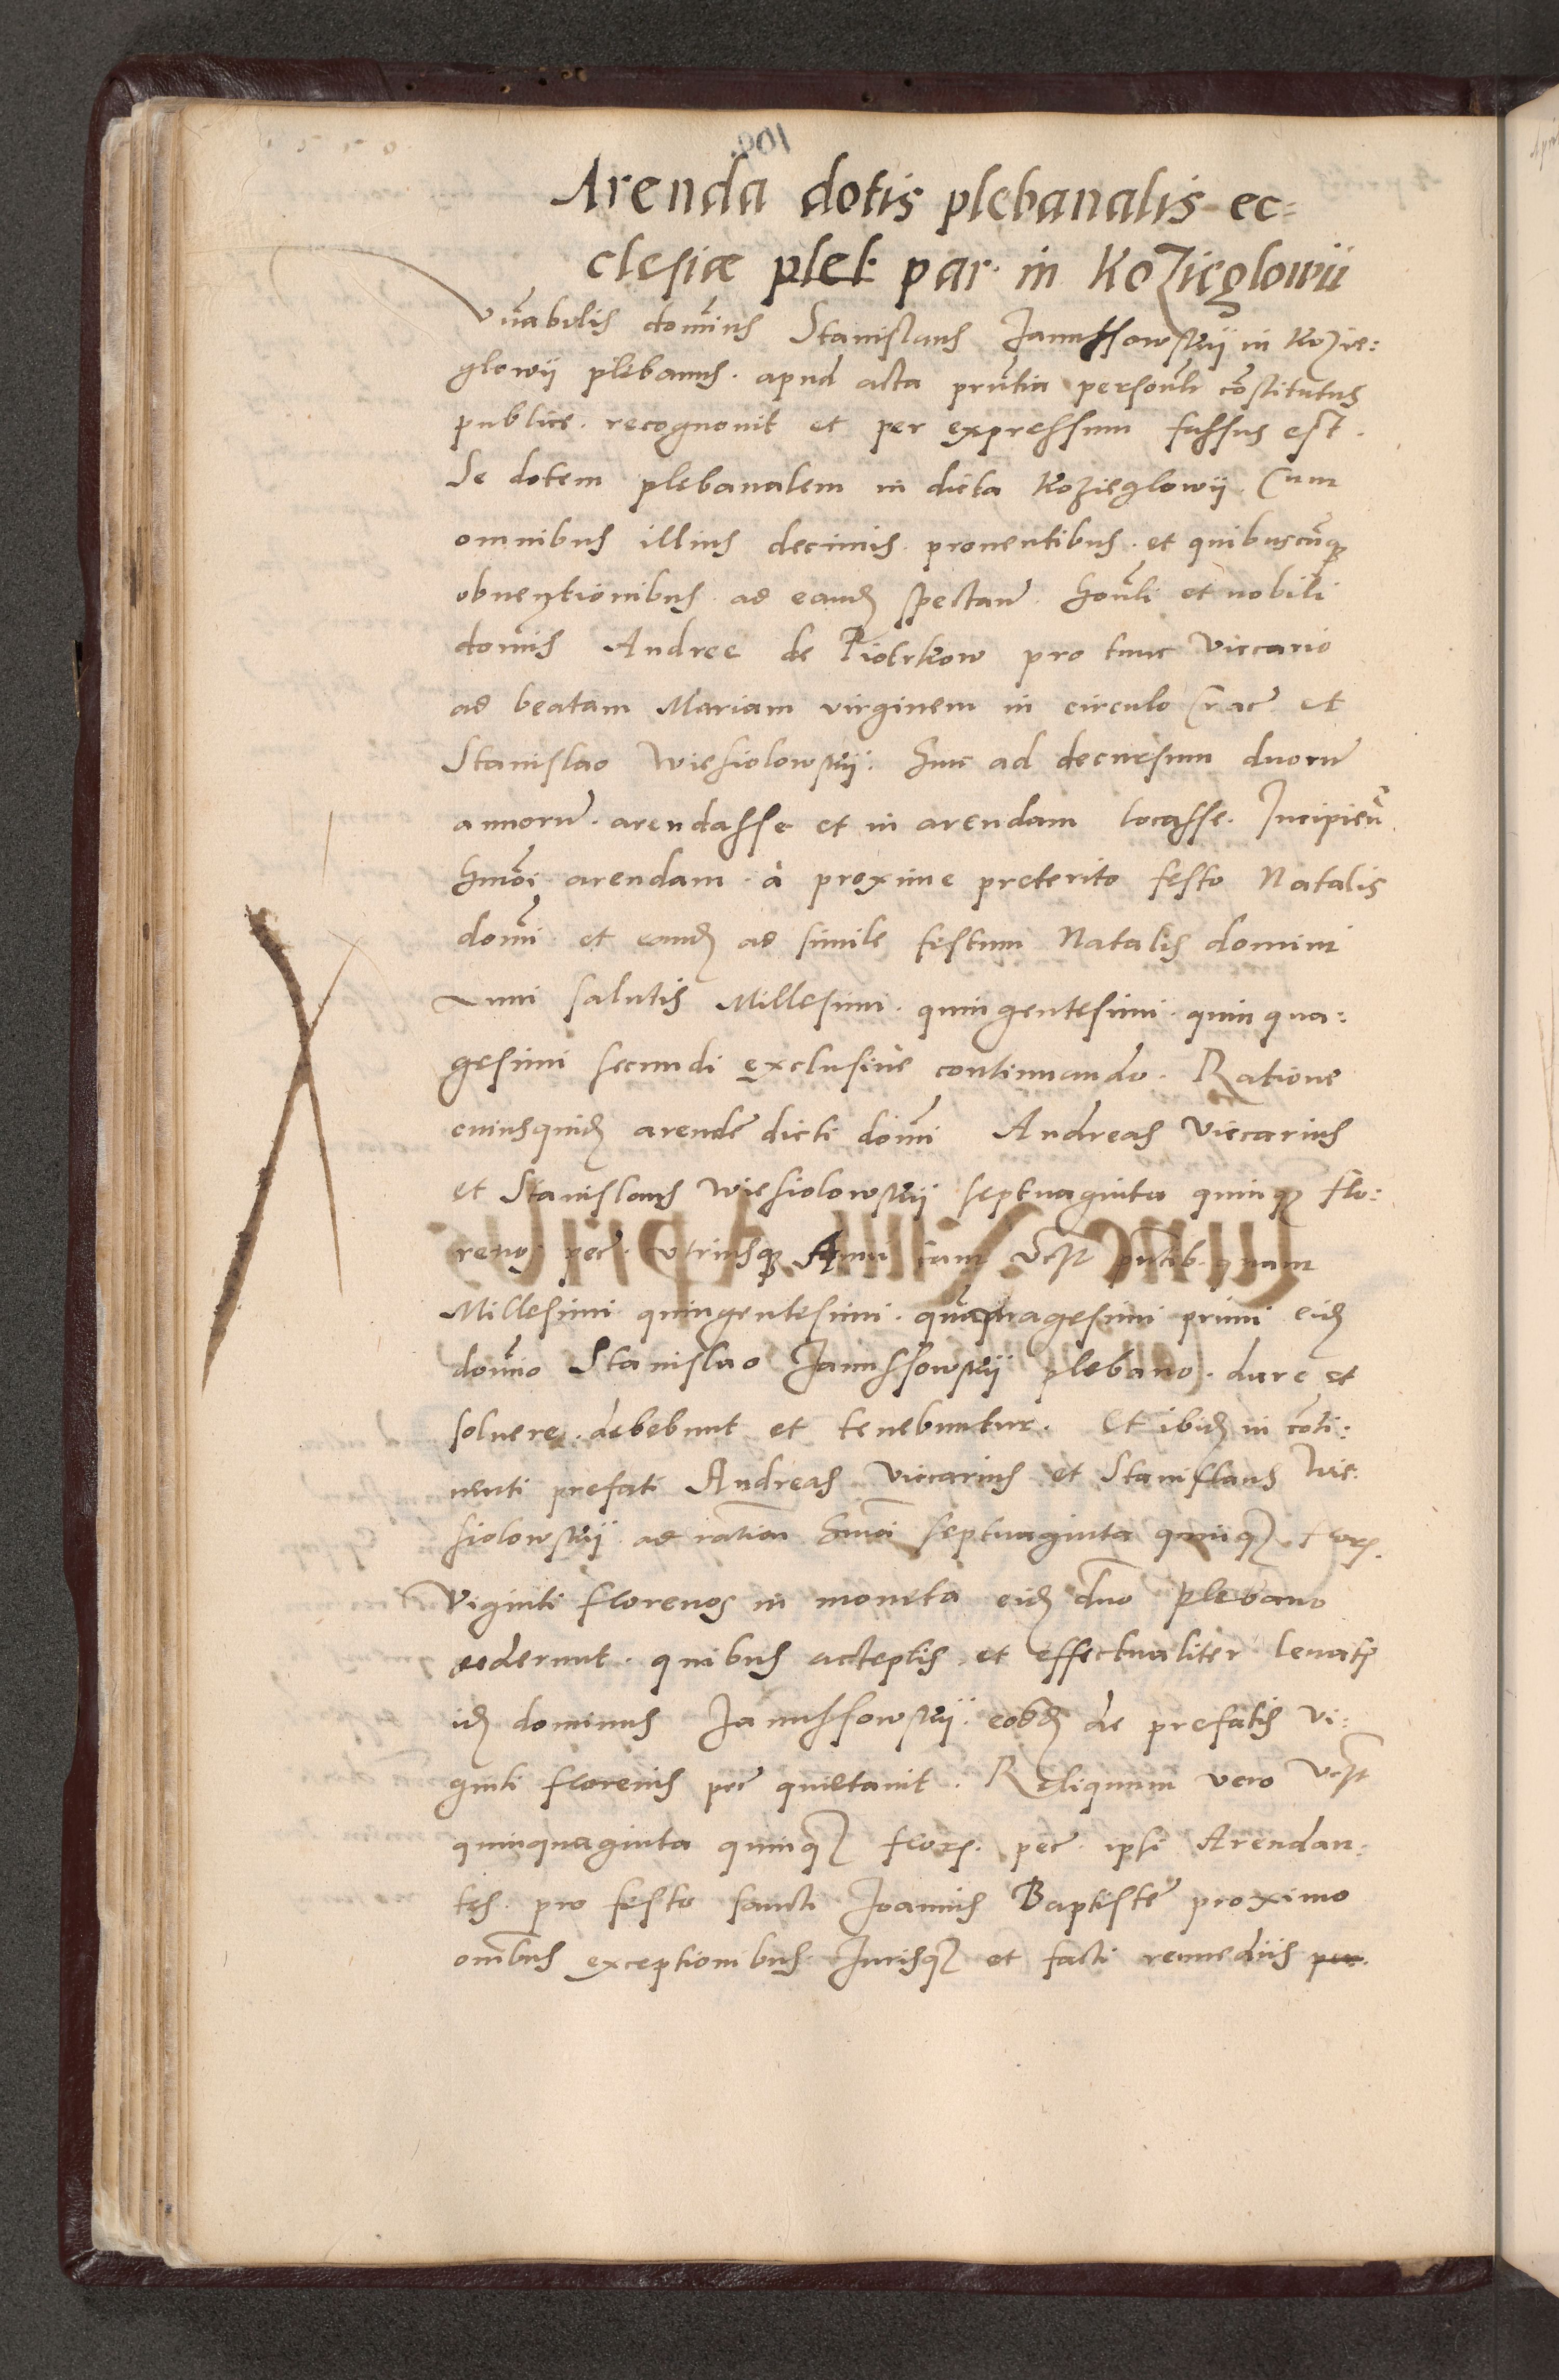 Arenda dotis plebanalis ec=
clesiæ pleb par. in Kozieglowii
Vnabilis dominus Stanislaus Janussowskij in Kozie:
glowij plebanus. apud acta pruntia personlr constitutus
publice. recognouit et per expressum fassus est.
Se dotem plebanalem in dicta Kozieglowij. Cum
omnibus illius decimis. prouentibus. et quibuscunqz
obuentionibus. ad eandem spectan. honli et nobili
domnis Andree de Piotrkow pro tunc viccario
ad beatam Mariam virginem in circulo Crac et
Stanislao Wiesiolowskij. hinc ad decursum duorum
annorum. arendasse et in arendam locasse. Incipien
hmoi arendam. à proxime preterito festo Natalis
domni et eandem ad simile festum Natalis domini
Anni salutis Millesimi. quingentesimi. quinqua:
gesimi secundi exclusiue continuando. Ratione
cuiusquidem arende dicti domni Andreas viccarius
et Stanislaus Wiesiolowskij septuaginta quinqz flo:
renos pec. vtriusqz Anni tam quam
Millesimi quingentesimi. primi eidem
domno Stanislao Janussowskij plebano. dare et
soluere. debebunt et tenebuntur. Et ibidem in conti:
nenti prefati Andreas viccarius et Stanislaus Wie:
siolowskij ad rationem hmoi septuaginta quinqz flor.
Viginti florenos in moneta eidem dno plebano
dederunt. quibus acceptis et effectualiter leuatis
idem dominus Janussowskij. eosdem de prefatis vi:
ginti florenis pec quietauit. Reliquum vero
quinquaginta quinqz flor. pec. ipsi Arendan:
tes. pro festo sancti Joannis Baptiste proximo
omnibus exceptionibus Jurisqz et facti remediis